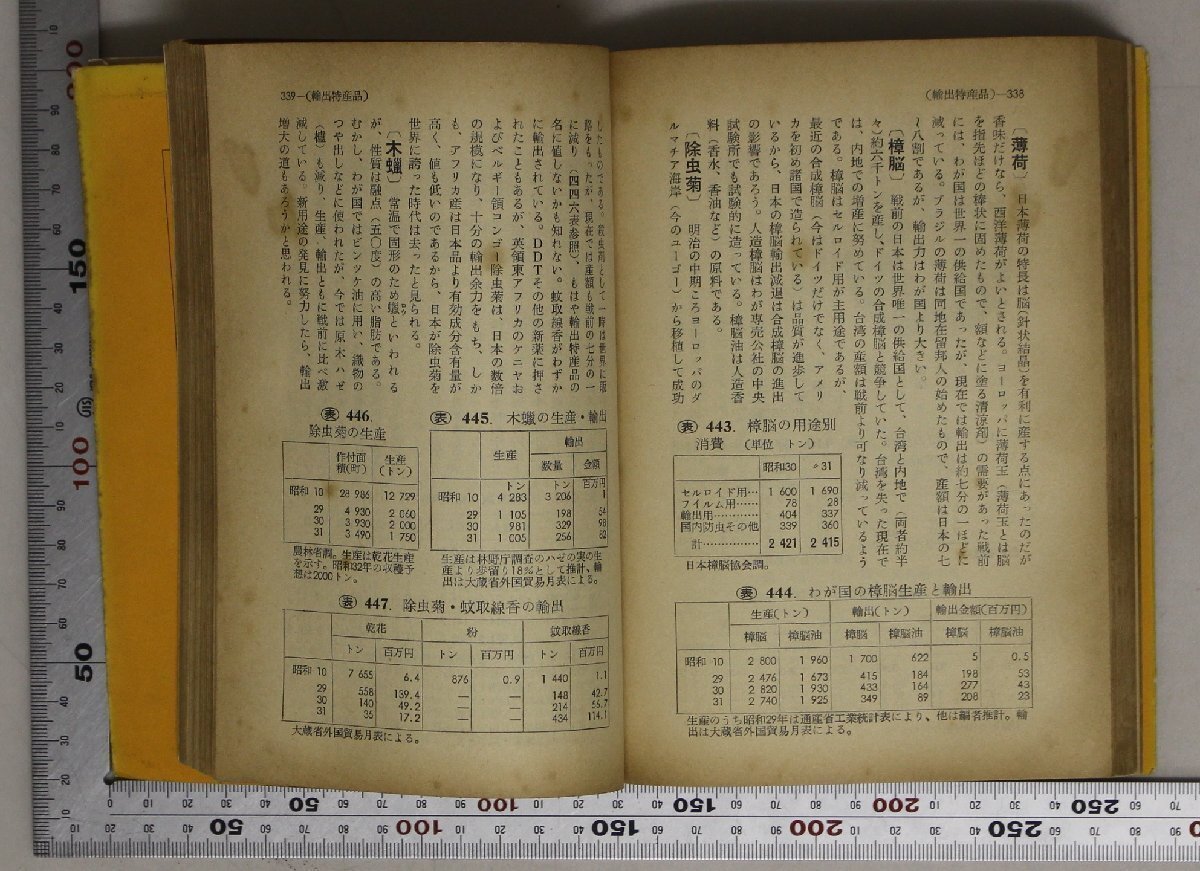 (輸出特産品)—338
〔薄荷〕 日本薄荷の特長は脳(針状結晶)を有利に産する点にあったのだが
香味だけなら、西洋薄荷がよいとされる。ヨーロッパに薄荷玉(薄荷玉とは脳
を指先ほどの棒状に固めたもので、額などに塗る清涼剤)の需要があった戦前
には、わが国は世界一の供給国であったが、現在では輸出は約七分の一ほどに
減っている。ブラジルの薄荷は同地在留邦人の始めたもので、産額は日本の七
〜八割であるが、輸出力はわが国より大きい。
〔樟脳〕 戦前の日本は世界唯一の供給国として、台湾と内地で(両者約半
々)約六千トンを産し、ドイツの合成樟脳と競争していた。台湾を失った現在で
は、内地での増産に努めている。台湾の産額は戦前より可なり減っているよう
である。樟脳はセルロイド用が主用途であるが、
最近の合成樟脳(今はドイツだけでなく、アメリ
カを初め諸国で造られている)は品質が進歩して
いるから、日本の樟脳輸出減退は合成樟脳の進出
の影響であろう。人造樟脳はわが専売公社の中央
試験所でも試験的に造っている。樟脳油は人造香
料(香水、香油など)の原料である。
〔除虫菊〕 明治の中期ころヨーロッパのダ
ルマチア海岸(今のユーゴー)から移植して成功
表 443. 樟脳の用途別
消費 (単位 トン)
昭和30 〃31
セルロイド用… 1 600 1 690
フイルム用…… 78 28
輸出用………… 404 337
国内防虫その他 339 360
計………… 2 421 2 415
日本樟脳協会調。
表 444. わが国の樟脳生産と輸出
生産(トン) 輸出(トン) 輸出金額(百万円)
樟脳 樟脳油 樟脳 樟脳油 樟脳 樟脳油
昭和 10 2 800 1 960 1 700 622 5 0.5
29 2 476 1 673 415 184 198 53
30 2 820 1 930 433 164 277 43
31 2 740 1 925 349 89 208 23
生産のうち昭和29年は通産省工業統計表により、他は編者推計。輸
出は大蔵省外国貿易月表による。
339—(輸出特産品)
したものである。殺虫剤として一時は世界に販
路をもったが、現在では産額も戦前の七分の一
に減り(四四六表参照)、もはや輸出特産品の
名に値しないかも知れない。蚊取線香がわずか
に輸出されている。DDTその他の新薬に押さ
れたこともあるが、英領東アフリカのケニヤお
よびベルギー領コンゴー除虫菊は、日本の数倍
の規模になり、十分の輸出余力をもち、しか
も、アフリカ産は日本品より有効成分含有量が
高く、値も低いのであるから、日本が除虫菊を
世界に誇った時代は去ったと見られる。
〔木蠟〕 常温で固形のため蠟といわれる
が、性質は融点(五〇度)の高い脂肪である。
むかし、わが国ではビンツケ油に用い、織物の
つや出しなどに使われたが、今では原木ハゼ
(櫨)も減り、生産、輸出ともに戦前に比べ激
減している。新用途の発見に努力したら、輸出
増大の道もあろうかと思われる。
表 445. 木蠟の生産・輸出
生産 輸出
数量 金額
トン トン 百万円
昭和 10 4 283 3 206 1
29 1 105 198 54
30 981 329 98
31 1 005 256 82
生産は林野庁調査のハゼの実の生
産より歩留り18%として推計、輸
出は大蔵省外国貿易月表による。
表 446.
除虫菊の生産
作付面積(町) 生産(トン)
昭和 10 28 986 12 729
29 4 930 2 060
30 3 930 2 000
31 3 490 1 750
農林省調。生産は乾花生産
を示す。昭和32年の収穫予
想は2000トン。
表 447. 除虫菊・蚊取線香の輸出
乾花 粉 蚊取線香
トン 百万円 トン 百万円 トン 百万円
昭和 10 7 655 6.4 876 0.9 1 440 1.1
29 558 139.4 — — 148 42.7
30 140 49.2 — — 214 56.7
31 35 17.2 — — 434 114.1
大蔵省外国貿易月表による。